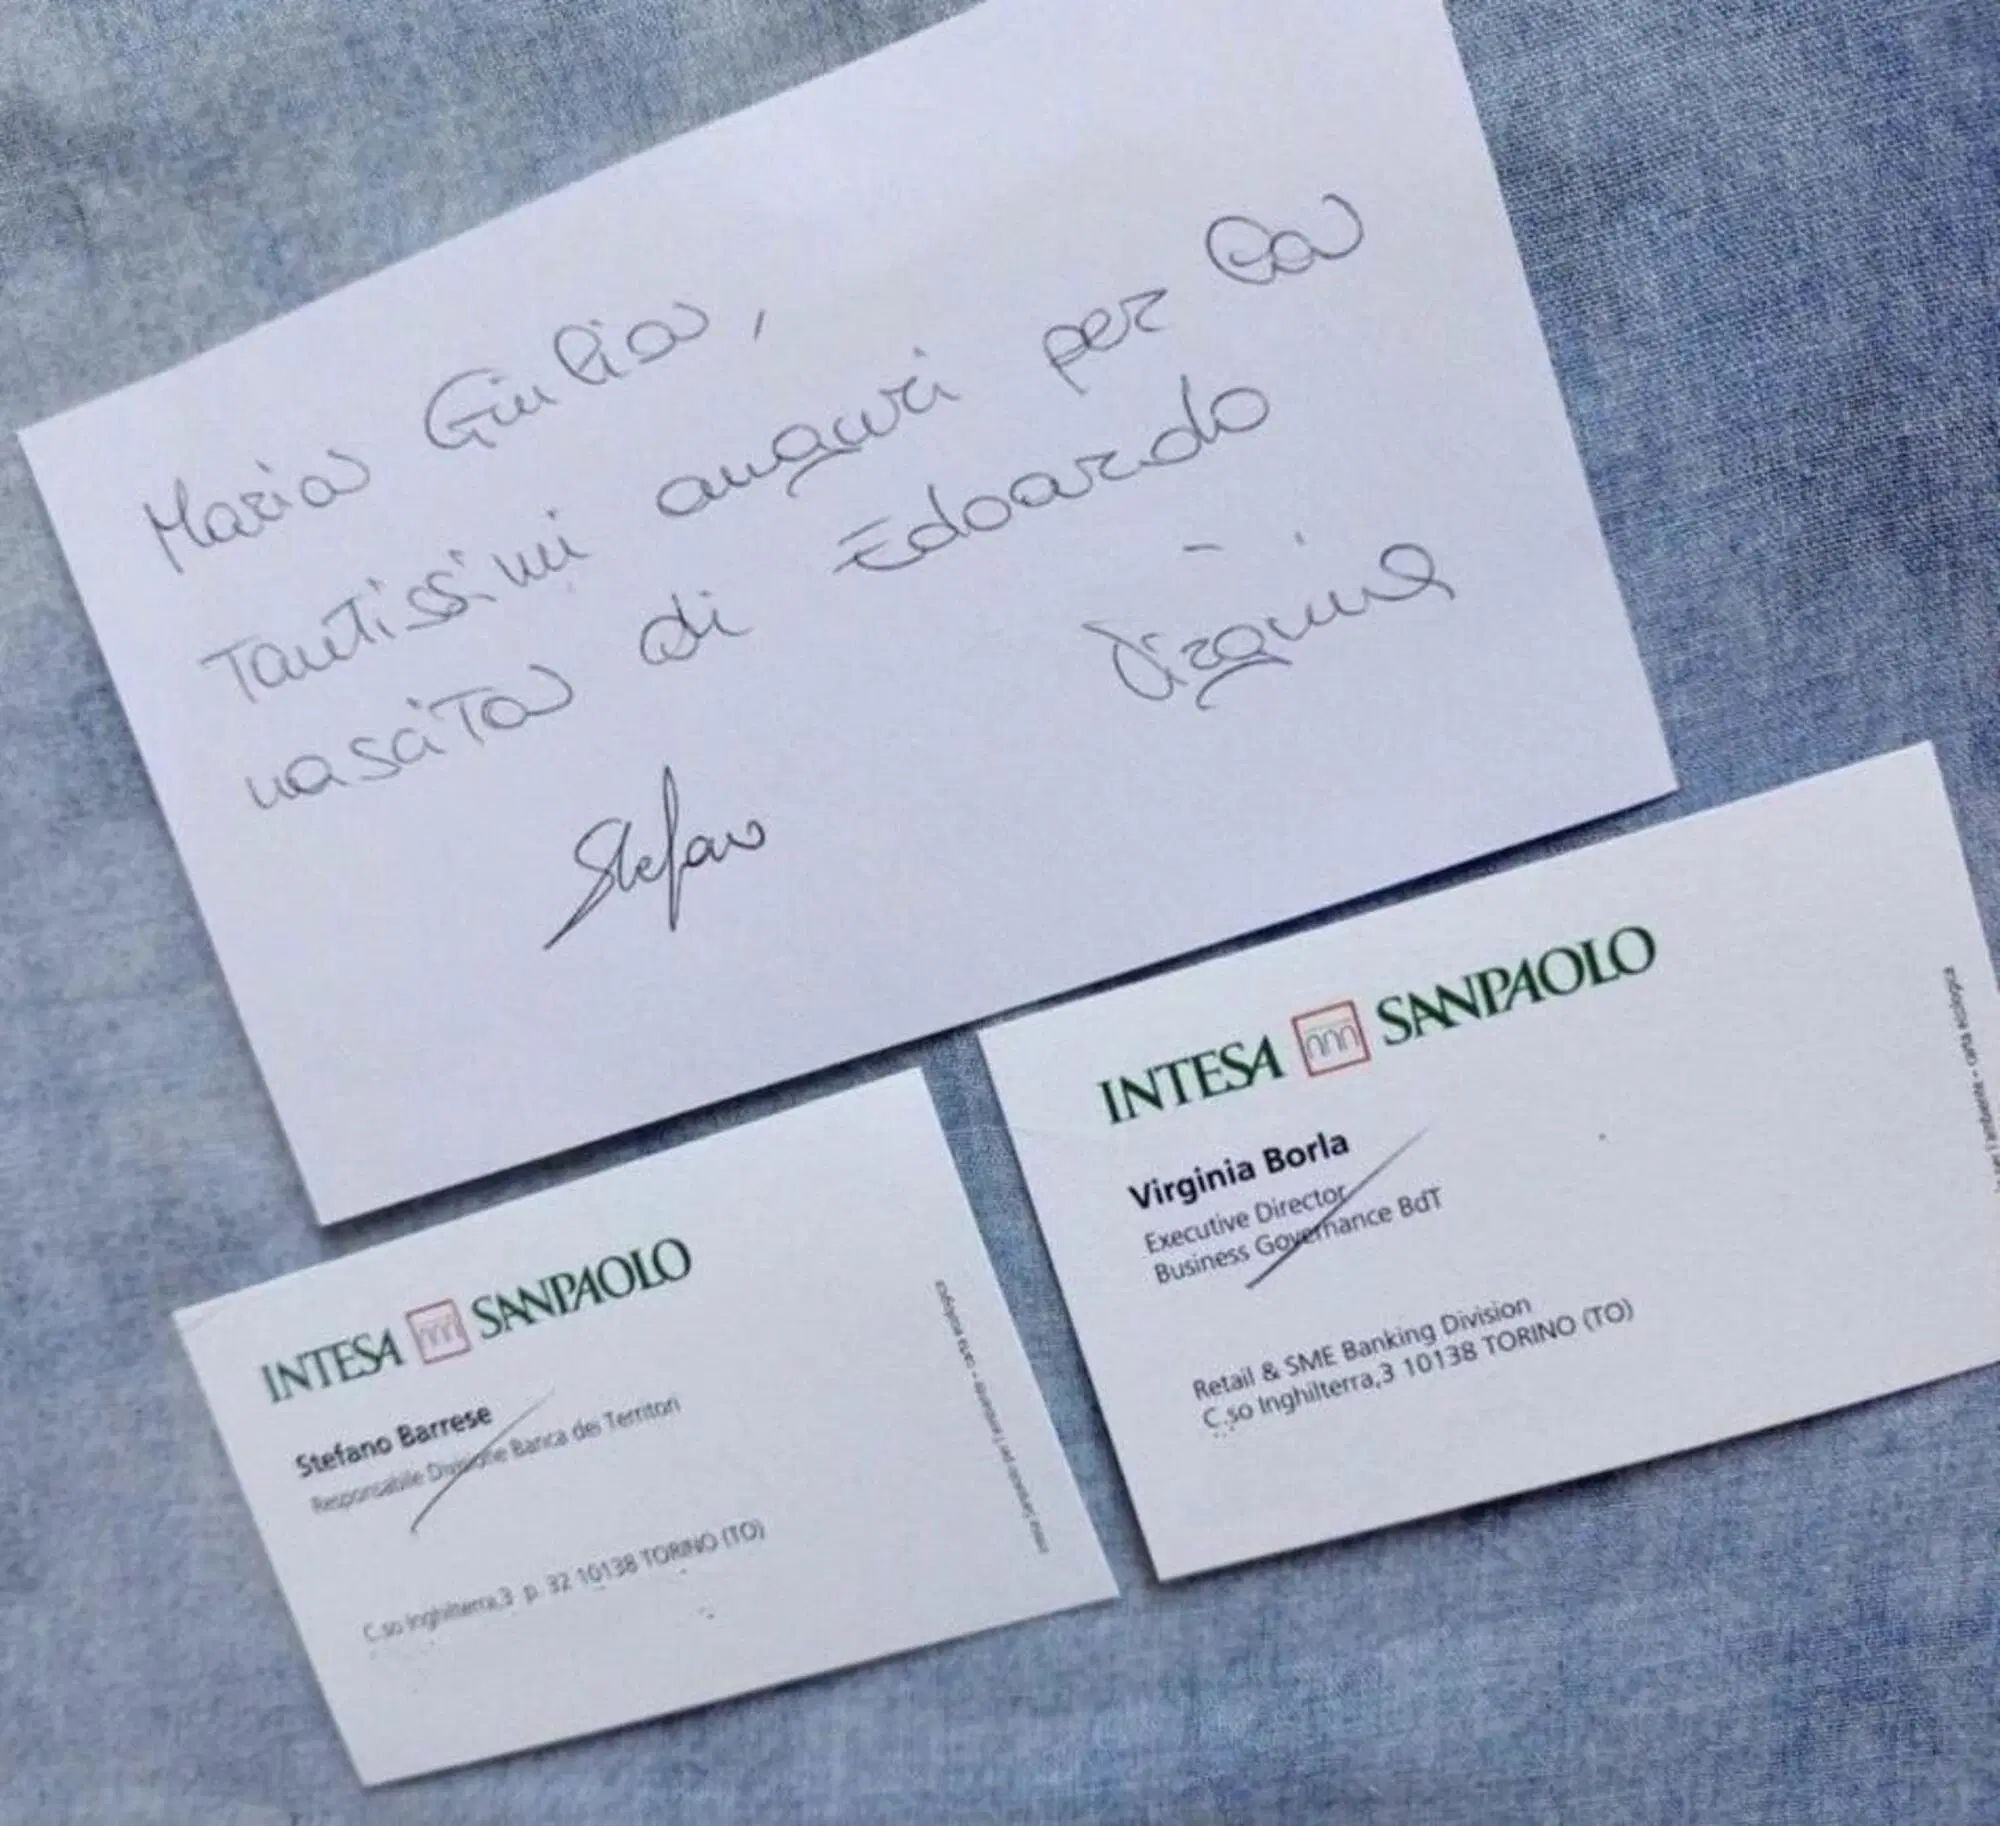 Maria Giulia,
Tantissimi auguri per la
nascita di Edoardo
Virginia
Stefano
INTESA SANPAOLO
Stefano Barrese
Responsabile Divisione Banca dei Territori
C.so Inghilterra,3 p. 32 10138 TORINO (TO)
INTESA SANPAOLO
Virginia Borla
Executive Director
Business Governance BdT
Retail & SME Banking Division
C.so Inghilterra,3 10138 TORINO (TO)
per l'ambiente - carta ecologica
l'ambiente - carta ecologica